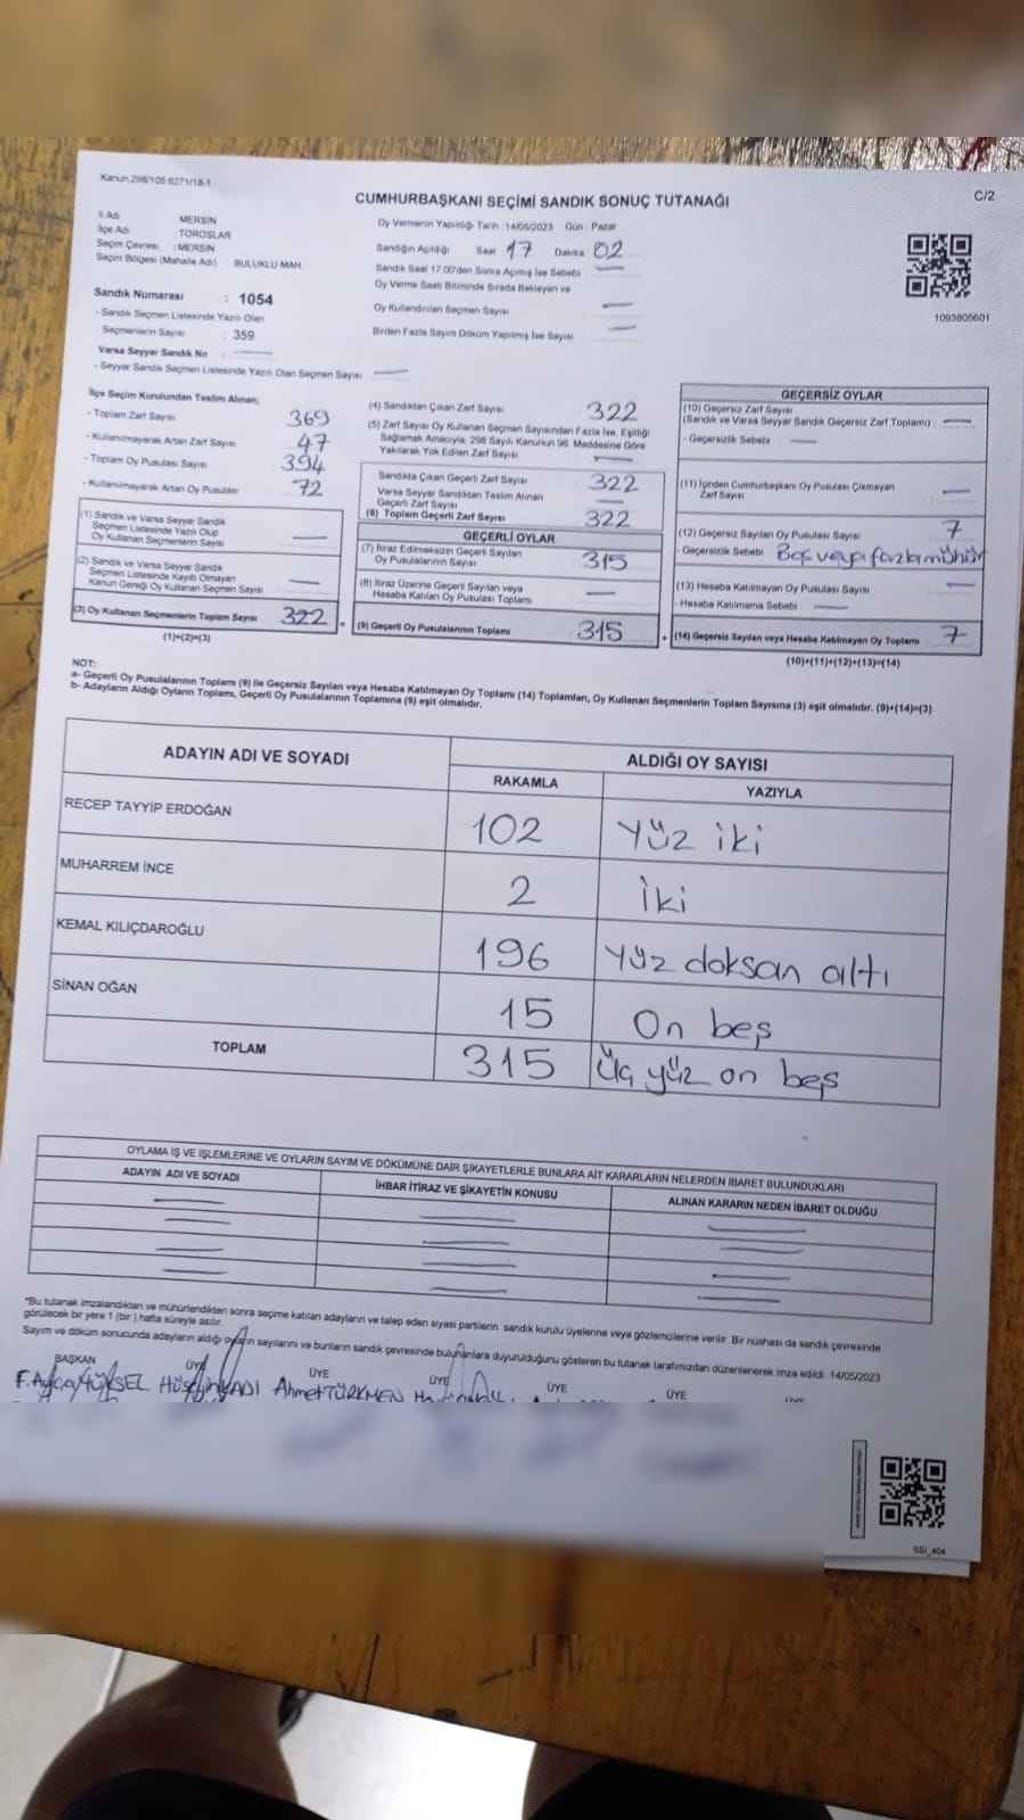 Kanun 298/105 6271/18-1
C/2
CUMHURBAŞKANI SEÇİMİ SANDIK SONUÇ TUTANAĞI
İl Adı MERSİN
İlçe Adı : TOROSLAR
Seçim Çevresi : MERSİN
Seçim Bölgesi (Mahalle Adı) : BULUKLU MAH.
Sandık Numarası : 1054
- Sandık Seçmen Listesinde Yazılı Olan
Seçmenlerin Sayısı : 359
Varsa Seyyar Sandık No :
- Seyyar Sandık Seçmen Listesinde Yazılı Olan Seçmen Sayısı
Oy Vermenin Yapıldığı Tarih : 14/05/2023 Gün : Pazar
Sandığın Açıldığı Saat 17 Dakika 02
Sandık Saat 17.00'den Sonra Açılmış İse Sebebi
Oy Verme Saati Bitiminde Sırada Bekleyen ve
Oy Kullandırılan Seçmen Sayısı
Birden Fazla Sayım Döküm Yapılmış İse Sayısı
1093805601
İlçe Seçim Kurulundan Teslim Alınan;
- Toplam Zarf Sayısı 369
- Kullanılmayarak Artan Zarf Sayısı 47
- Toplam Oy Pusulası Sayısı 394
- Kullanılmayarak Artan Oy Pusulası 72
(1) Sandık ve Varsa Seyyar Sandık
Seçmen Listesinde Yazılı Olup
Oy Kullanan Seçmenlerin Sayısı
(2) Sandık ve Varsa Seyyar Sandık
Seçmen Listesinde Kayıtlı Olmayan
Kanun Gereği Oy Kullanan Seçmen Sayısı
(3) Oy Kullanan Seçmenlerin Toplam Sayısı 322
(1)+(2)=(3)
(4) Sandıktan Çıkan Zarf Sayısı 322
(5) Zarf Sayısı Oy Kullanan Seçmen Sayısından Fazla İse, Eşitliği
Sağlamak Amacıyla, 298 Sayılı Kanunun 98. Maddesine Göre
Yakılarak Yok Edilen Zarf Sayısı
Sandıkta Çıkan Geçerli Zarf Sayısı 322
Varsa Seyyar Sandıktan Teslim Alınan
Geçerli Zarf Sayısı
(6) Toplam Geçerli Zarf Sayısı 322
GEÇERLİ OYLAR
(7) İtiraz Edilmeksizin Geçerli Sayılan
Oy Pusulalarının Sayısı 315
(8) İtiraz Üzerine Geçerli Sayılan veya
Hesaba Katılan Oy Pusulası Toplamı
(9) Geçerli Oy Pusulalarının Toplamı 315
GEÇERSİZ OYLAR
(10) Geçersiz Zarf Sayısı
(Sandık ve Varsa Seyyar Sandık Geçersiz Zarf Toplamı)
- Geçersizlik Sebebi :
(11) İçinden Cumhurbaşkanı Oy Pusulası Çıkmayan
Zarf Sayısı
(12) Geçersiz Sayılan Oy Pusulası Sayısı 7
- Geçersizlik Sebebi Boş veya fazla mühür
(13) Hesaba Katılmayan Oy Pusulası Sayısı
- Hesaba Katılmama Sebebi :
(14) Geçersiz Sayılan veya Hesaba Katılmayan Oy Toplamı 7
(10)+(11)+(12)+(13)=(14)
NOT:
a- Geçerli Oy Pusulalarının Toplamı (9) ile Geçersiz Sayılan veya Hesaba Katılmayan Oy Toplamı (14) Toplamları, Oy Kullanan Seçmenlerin Toplam Sayısına (3) eşit olmalıdır. (9)+(14)=(3)
b- Adayların Aldığı Oyların Toplamı, Geçerli Oy Pusulalarının Toplamına (9) eşit olmalıdır.
ADAYIN ADI VE SOYADI
ALDIĞI OY SAYISI
RAKAMLA YAZIYLA
RECEP TAYYİP ERDOĞAN 102 Yüz iki
MUHARREM İNCE 2 İki
KEMAL KILIÇDAROĞLU 196 Yüz doksan altı
SİNAN OĞAN 15 On beş
TOPLAM 315 Üç yüz on beş
OYLAMA İŞ VE İŞLEMLERİNE VE OYLARIN SAYIM VE DÖKÜMÜNE DAİR ŞİKAYETLERLE BUNLARA AİT KARARLARIN NELERDEN İBARET BULUNDUKLARI
ADAYIN ADI VE SOYADI İHBAR İTİRAZ VE ŞİKAYETİN KONUSU ALINAN KARARIN NEDEN İBARET OLDUĞU
*Bu tutanak imzalandıktan ve mühürlendikten sonra seçime katılan adayların ve talep eden siyasi partilerin sandık kurulu üyelerine veya gözlemcilerine verilir. Bir nüshası da sandık çevresinde
görülecek bir yere 1 (bir) hafta süreyle asılır.
Sayım ve döküm sonucunda adayların aldığı oyların sayılarını ve bunların sandık çevresinde bulunanlara duyurulduğunu gösteren bu tutanak tarafımızdan düzenlenerek imza edildi. 14/05/2023
BAŞKAN ÜYE ÜYE ÜYE ÜYE ÜYE
F. Ayça YÜKSEL Ahmet TÜRKMEN
SSI_404